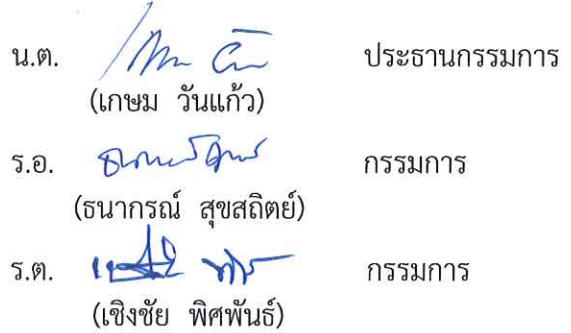 น.ต. ประธานกรรมการ
(เกษม วันแก้ว)
ร.อ. กรรมการ
(ธนากรณ์ สุขสถิตย์)
ร.ต. กรรมการ
(เชิงชัย พิศพันธ์)